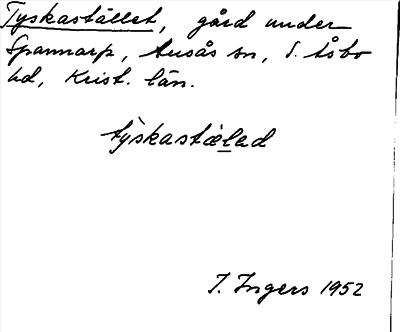 Tyskastället, gård under
Spannarp, Ausås sn, S. Åsbo
hd, Krist. län.
tỳskastæḷad
I. Ingers 1952